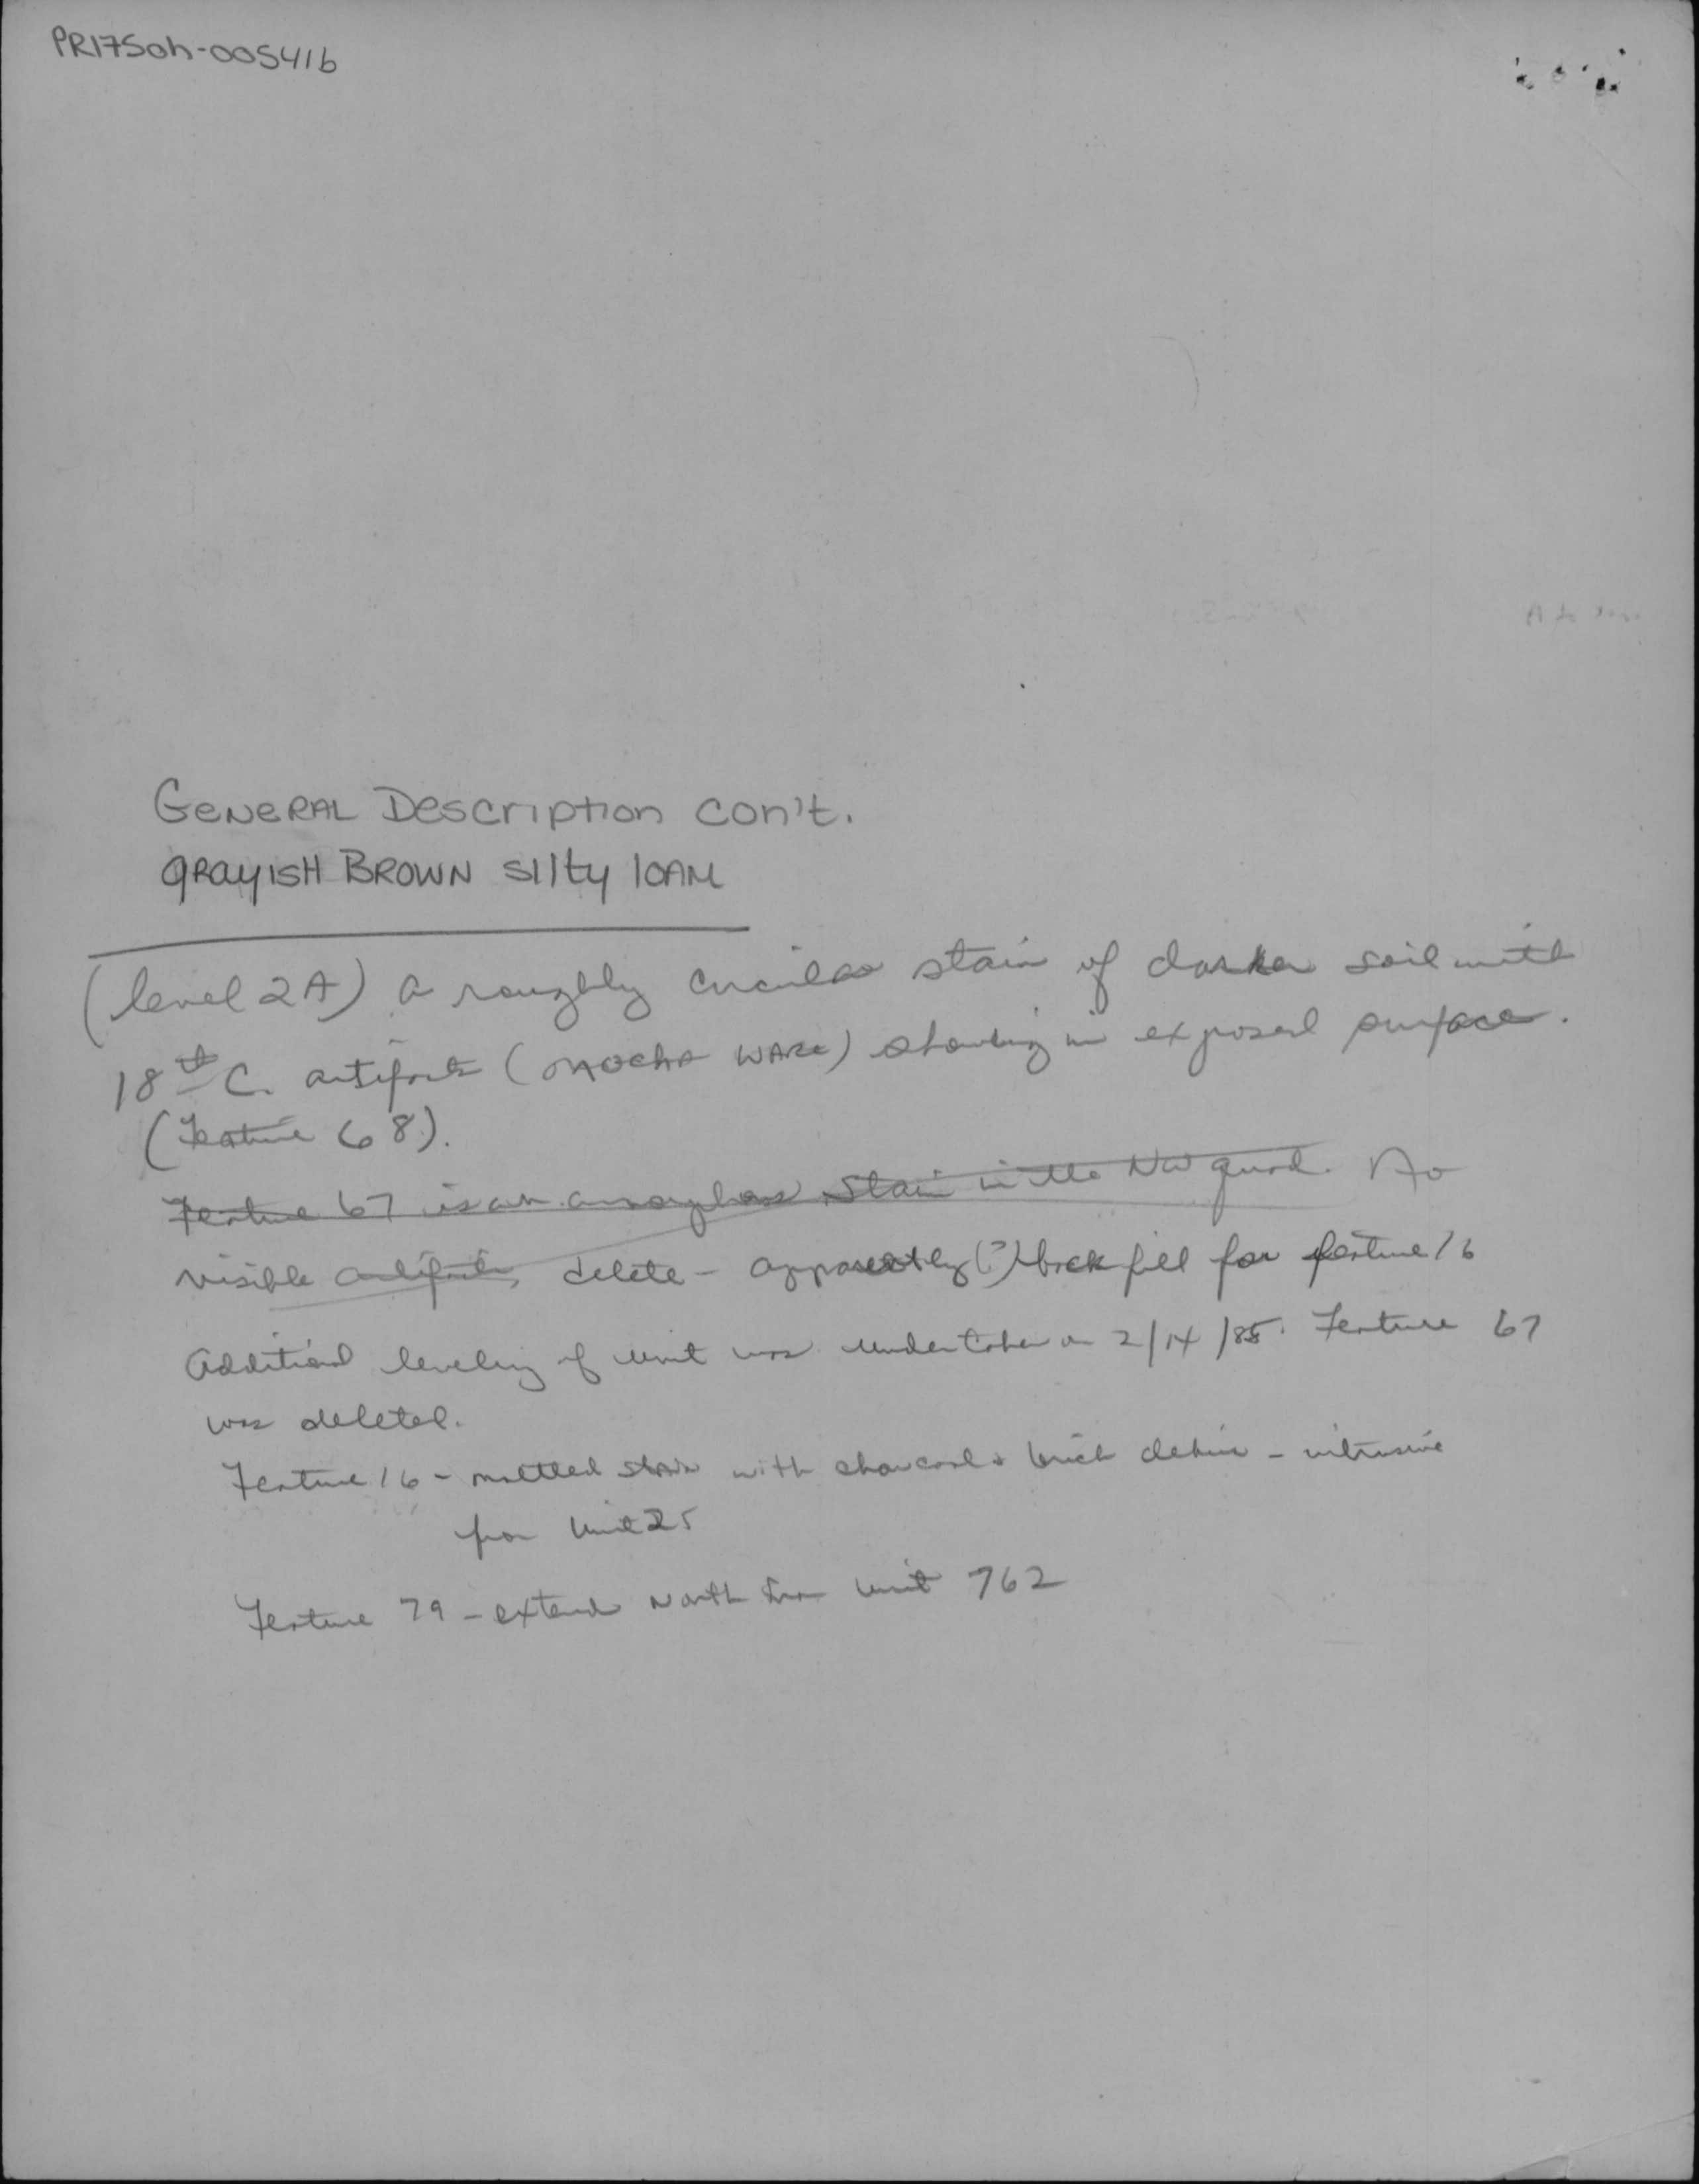 PR175oh-005416
GENERAL Description con't.
GRAYISH BROWN silty loam
(level 2A) a roughly circular stain of darker soil with
18th C. artifacts (mocha ware) showing in exposed surface.
(Feature 68).
Feature 67 is an amorphous stain in the NW quad. No
visible artifacts, delete - apparently (?) backfill for feature 16
Additional leveling of unit was undertaken on 2/14/85. Feature 67
was deleted.
Feature 16 - mottled stain with charcoal & brick debris - intrusive
from Unit 25
Feature 79 - extends North from Unit 762